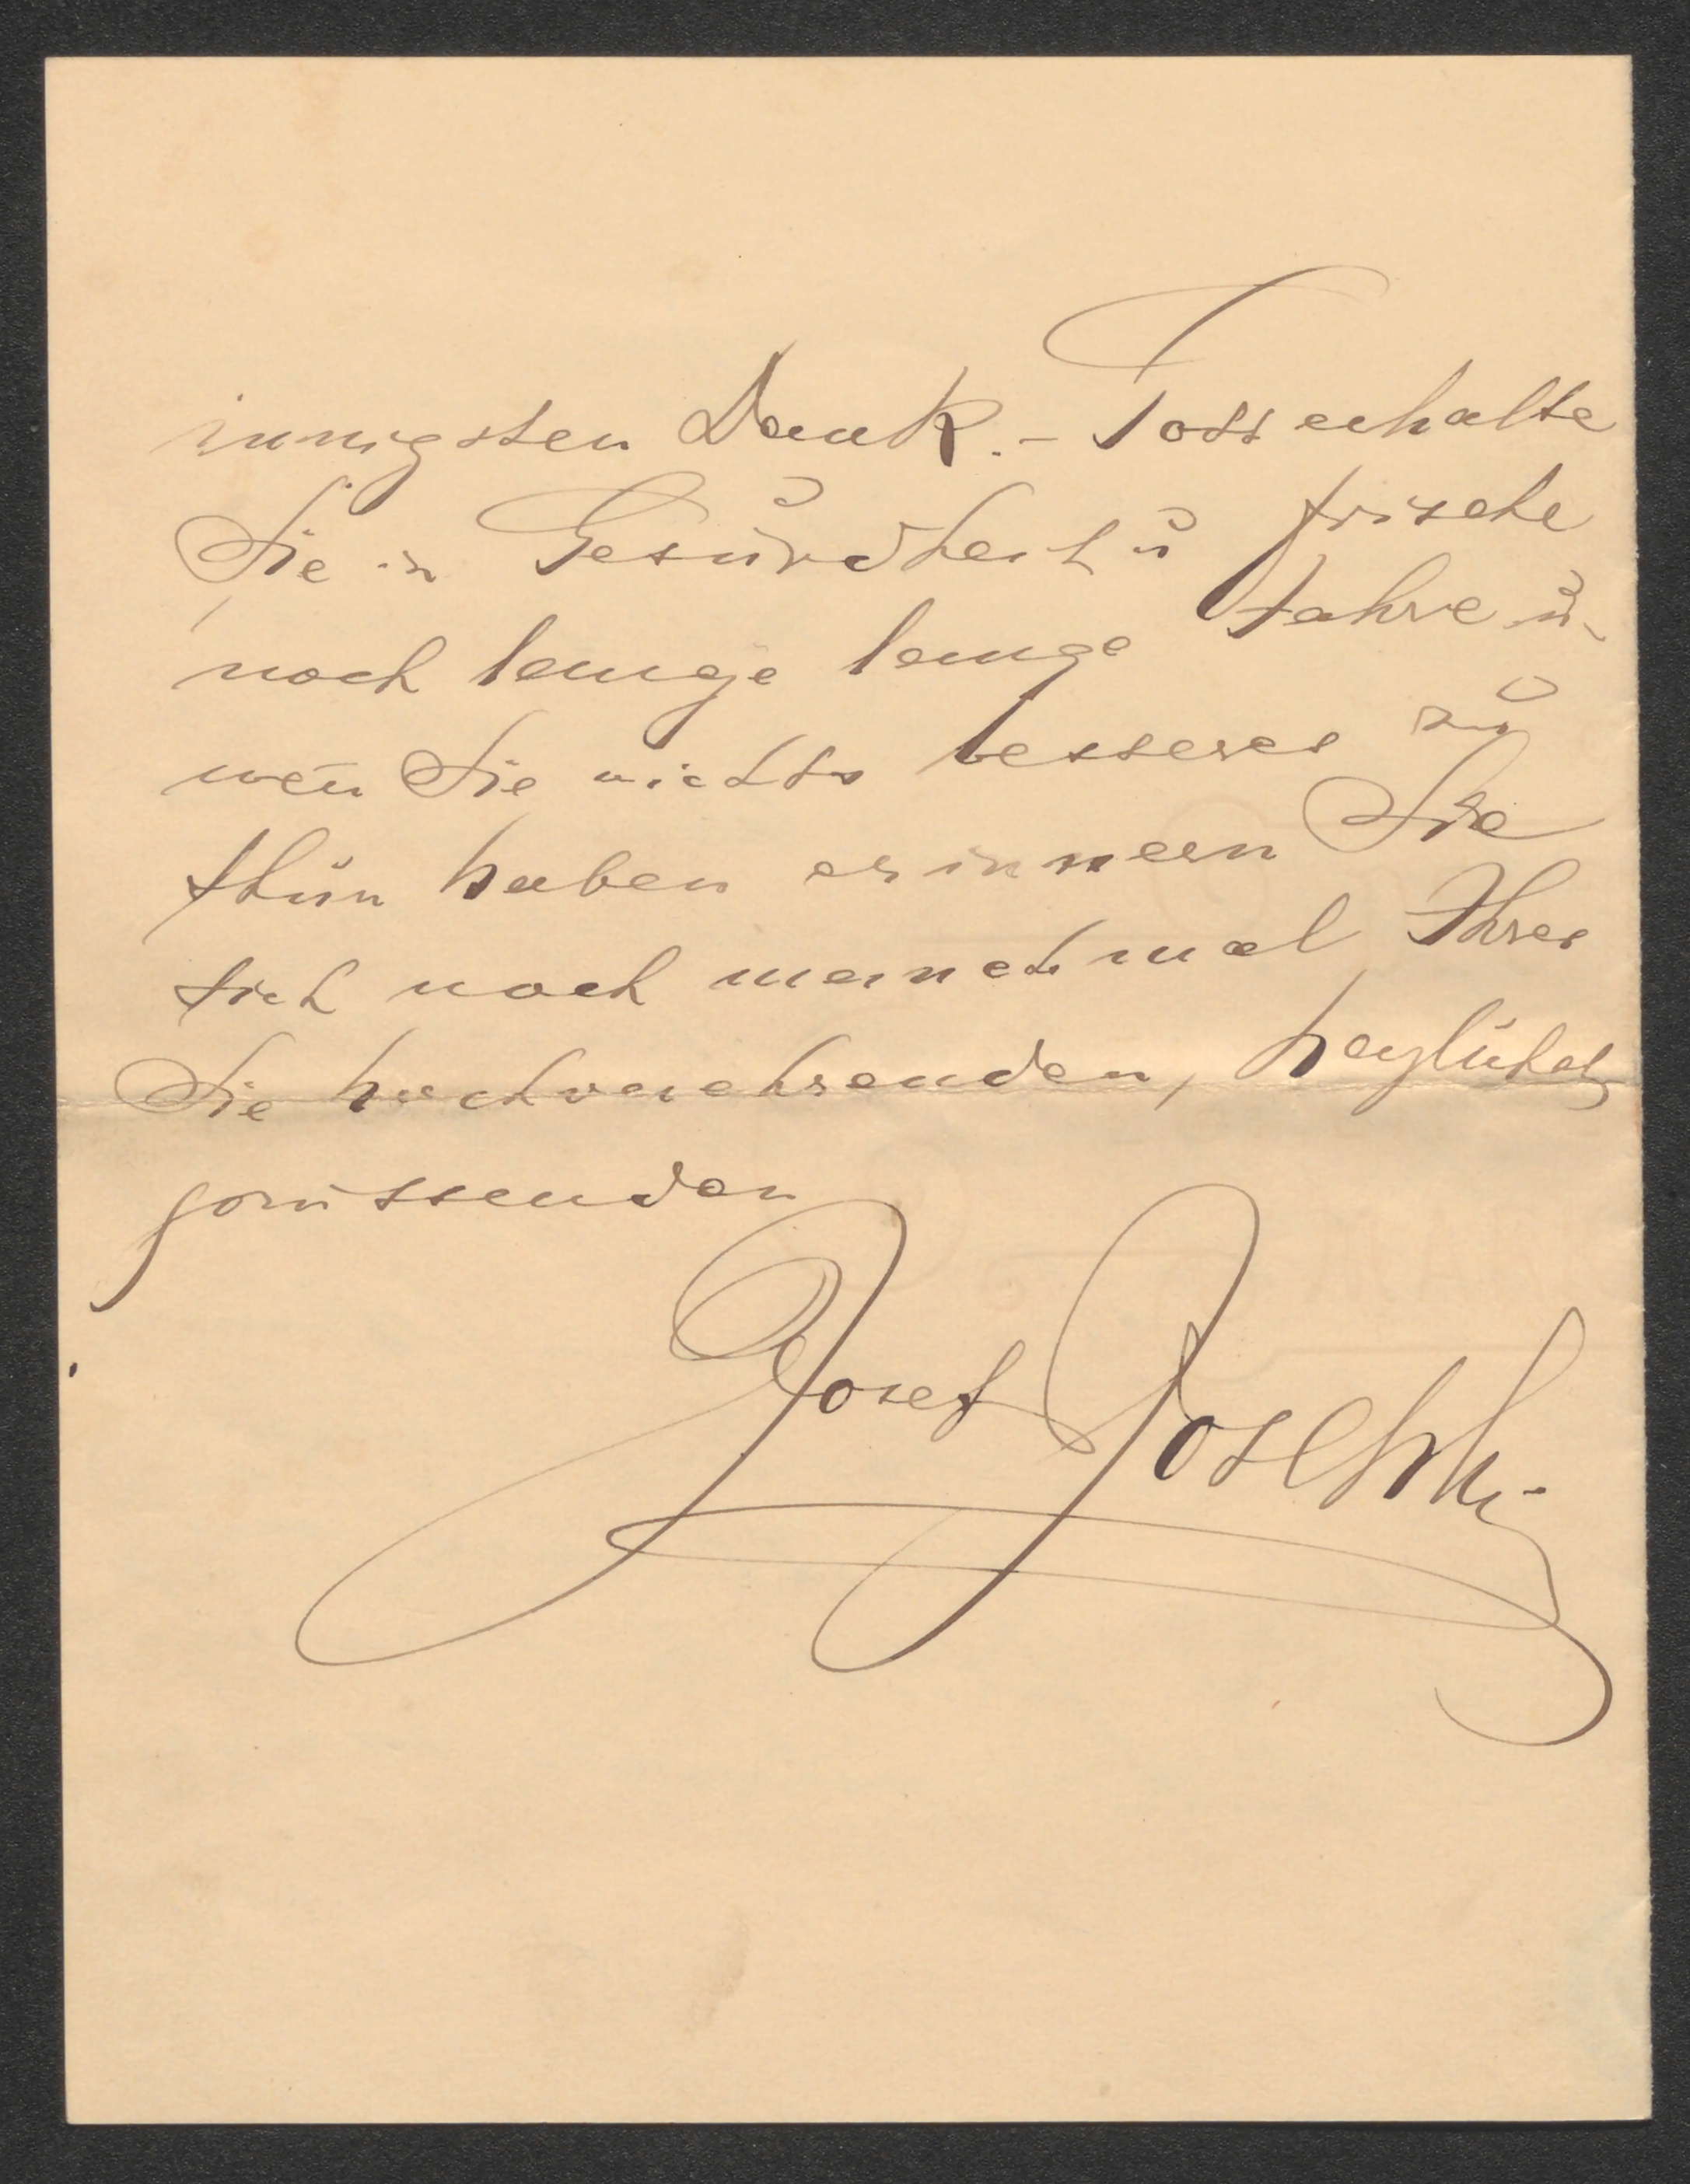 innigsten Dank. – Gott erhalte
Sie in Gesundheit u frische
noch lange lange Jahre u.
wen̄ Sie nichts besseres zu
thun haben erinnern Sie
sich noch manchmal Ihres
Sie hochverehrenden, herzlichst
grüssenden
Josef Joschki